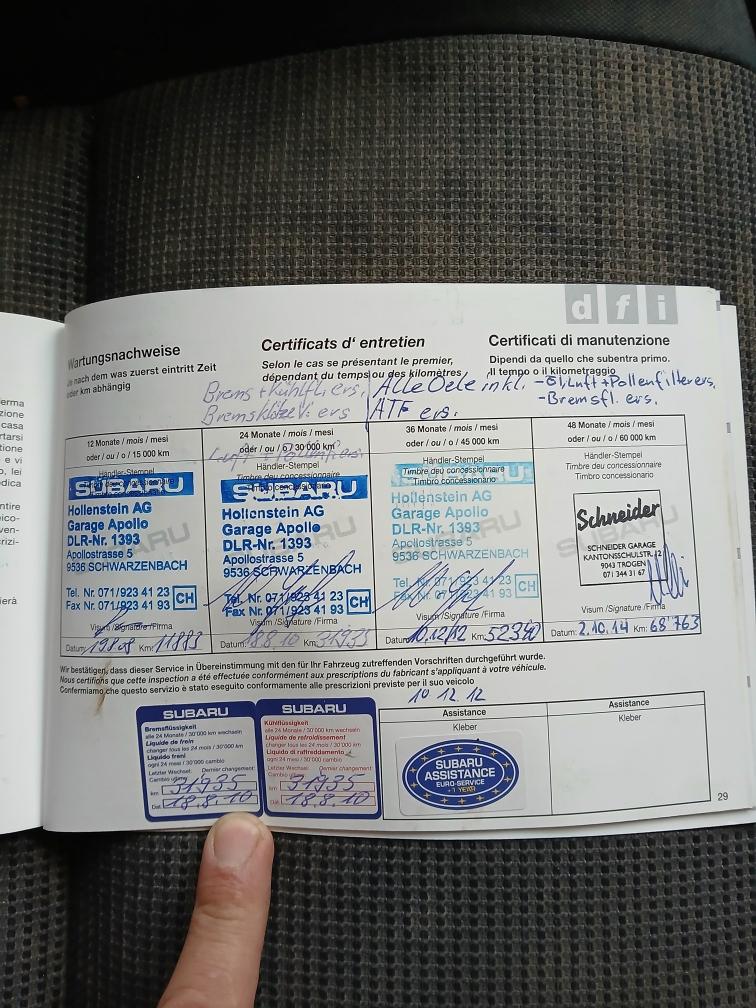 d f i
Wartungsnachweise
Je nach dem was zuerst eintritt Zeit
oder km abhängig
Certificats d' entretien
Selon le cas se présentant le premier,
dépendant du temps ou des kilomètres
Certificati di manutenzione
Dipendi da quello che subentra primo.
Il tempo o il kilometraggio
Brems + Kühlfl. ers.
Bremsklötze V. ers
Alle Oele inkl.
ATF ers.
- Öl, Luft + Pollenfilter ers.
- Bremsfl. ers.
12 Monate / mois / mesi
oder / ou / o 15 000 km
Händler-Stempel
SUBARU
Hollenstein AG
Garage Apollo
DLR-Nr. 1393
Apollostrasse 5
9536 SCHWARZENBACH
Tel. Nr. 071/923 41 23
Fax Nr. 071/923 41 93
CH
Visum /Signature /Firma
Datum: Km: 11883
24 Monate / mois / mesi
oder / ou / o 30 000 km
Händler-Stempel
Timbre deu concessionnaire
Timbro concessionario
SUBARU
Hollenstein AG
Garage Apollo
DLR-Nr. 1393
Apollostrasse 5
9536 SCHWARZENBACH
Tel. Nr. 071/923 41 23
Fax Nr. 071/923 41 93
CH
Visum /Signature /Firma
Datum: 18.8.10 Km: 31935
36 Monate / mois / mesi
oder / ou / o 45 000 km
Händler-Stempel
Timbre deu concessionnaire
Timbro concessionario
SUBARU
Hollenstein AG
Garage Apollo
DLR-Nr. 1393
Apollostrasse 5
9536 SCHWARZENBACH
Tel. Nr. 071/923 41 23
Fax Nr. 071/923 41 93
CH
Visum /Signature /Firma
Datum: 10.12.12 Km: 52340
48 Monate / mois / mesi
oder / ou / o 60 000 km
Händler-Stempel
Timbre deu concessionnaire
Timbro concessionario
SUBARU
Schneider
SCHNEIDER GARAGE
KANTONSSCHULSTR. 12
9043 TROGEN
071 344 31 67
Visum /Signature /Firma
Datum: 2.10.14 Km: 68'763
Wir bestätigen, dass dieser Service in Übereinstimmung mit den für Ihr Fahrzeug zutreffenden Vorschriften durchgeführt wurde.
Nous certifions que cette inspection a été effectuée conformément aux prescriptions du fabricant s'appliquant à votre véhicule.
Confermiamo che questo servizio è stato eseguito conformemente alle prescrizioni previste per il suo veicolo
10 12. 12
SUBARU
Bremsflüssigkeit
alle 24 Monate / 30'000 km wechseln
Liquide de frein
changer tous les 24 mois / 30'000 km
Liquido freni
ogni 24 mesi / 30'000 cambio
Letzter Wechsel: Dernier changement:
Cambio
km 31935
Dat. 18.8.10
SUBARU
Kühlflüssigkeit
alle 24 Monate / 30'000 km wechseln
Liquide de refroidissement
changer tous les 24 mois / 30'000 km
Liquido di raffreddamento
ogni 24 mesi / 30'000 cambio
Letzter Wechsel: Dernier changement:
Cambio
km 31935
Dat. 18.8.10
Assistance
Kleber
SUBARU
ASSISTANCE
EURO-SERVICE
+1 YEAR
Assistance
Kleber
29